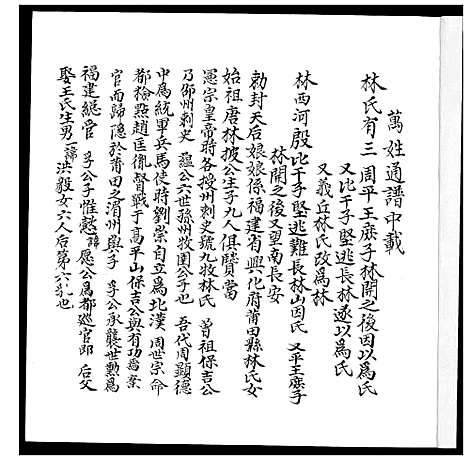 萬姓通譜中載
林氏有三 周平王庶子林開之後因以爲氏
又比干子堅逃長林遂以爲氏
又義丘林氏改爲林
林西河殷比干子堅逃難長林山因氏 又平王庶子
林開之後又望南長安
勅封天后娘娘係福建省興化府莆田縣林氏女
始祖唐林披公生子九人俱賢當
憲宗皇帝時各授州刺史號九牧林氏 曾祖保吉公
乃邵州刺史 蘊公六世孫州牧圉公子也 吾代周顯德
中爲統軍兵馬使時劉崇自立爲北漢 周世宗命
都檢點趙匡胤督戰于高平山保吉公與有功焉棄
官而歸隱於莆田之湄州嶼子 孚公承襲世勳爲
福建總管 孚公子惟愨諱愿公爲都巡官卽 后父
娶王氏生男一諱洪毅女六人后第六乳也